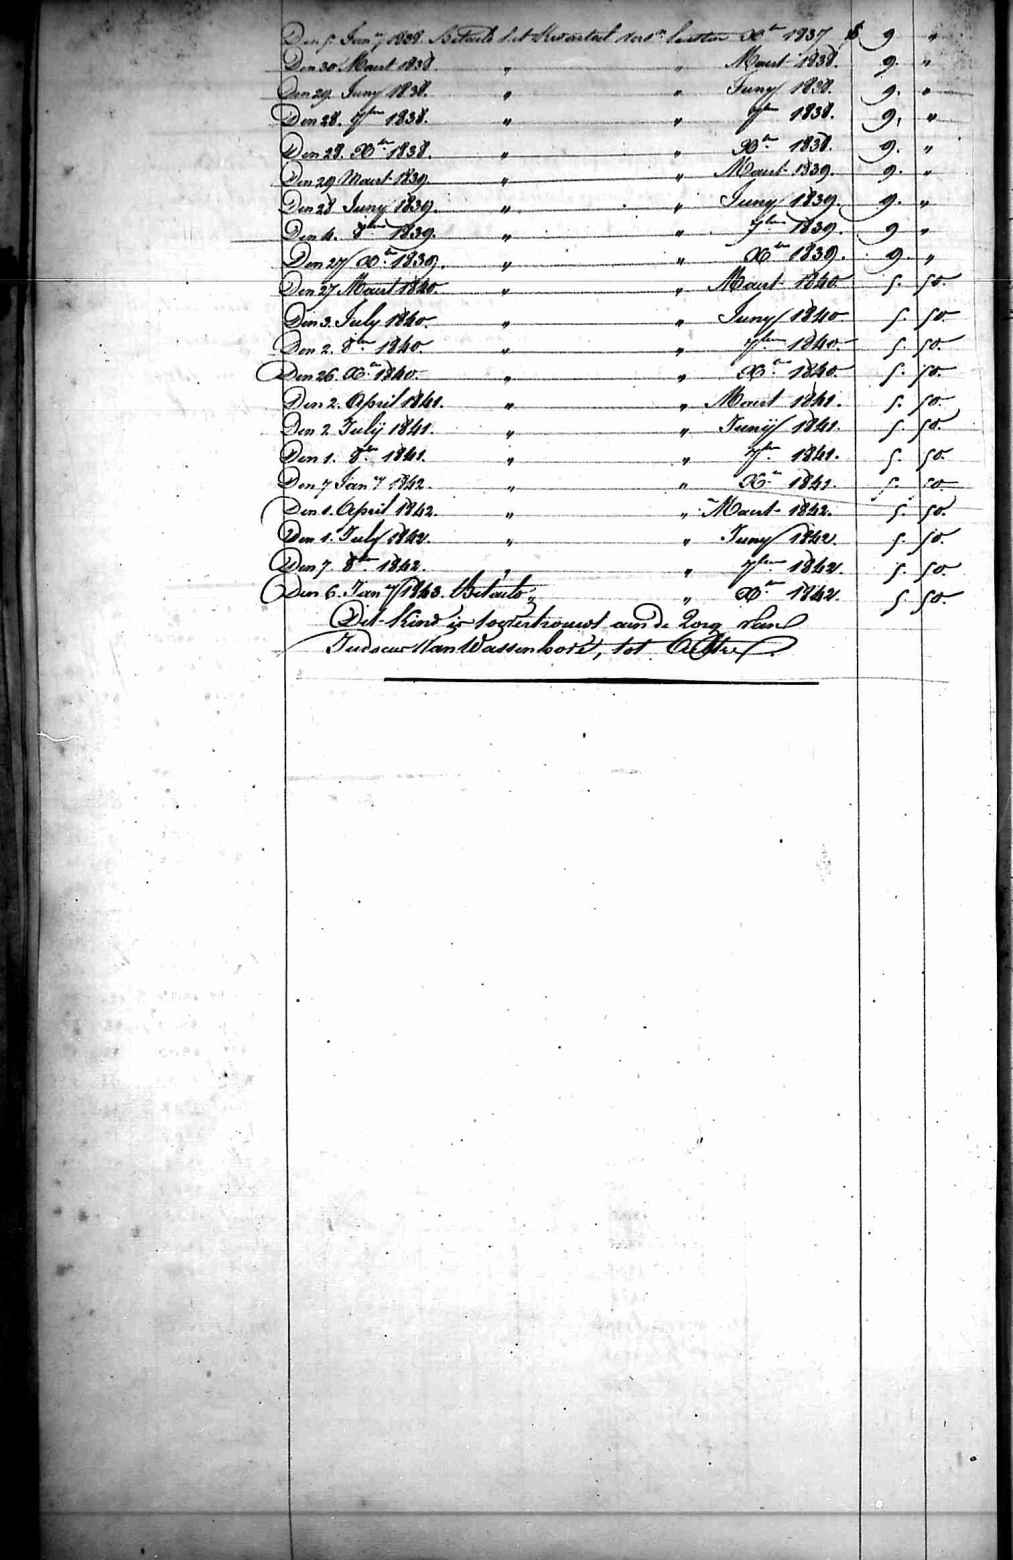 Den 5. Jan.y 1838. Betaelt het Kwartael verv.n lesten X.er 1837. 9 "
Den 30 Maert 1838. " " Maert 1838. 9. "
Den 29. Juny 1838. " " Juny 1838. 9. "
Den 28. 7ber 1838. " " 7ber 1838. 9. "
Den 28. Xer 1838. " " Xer 1838. 9. "
Den 29 Maert 1839 " " Maert 1839. 9. "
Den 28 Juny 1839. " " Juny 1839. 9. "
Den 4. 8ber 1839. " " 7ber 1839. 9 "
Den 27 Xer 1839. " " Xer 1839. 9. "
Den 27 Maert 1840 " " Maert 1840 5. 50.
Den 3. July 1840. " " Juny 1840. 5. 50.
Den 2. 8ber 1840. " " 7ber 1840. 5. 50.
Den 26. Xer 1840. " " Xer 1840 5. 50.
Den 2. April 1841. " " Maert 1841. 5. 50.
Den 2 Julÿ 1841. " " Junÿ 1841. 5 50.
Den 1. 8ber 1841. " " 7ber 1841. 5. 50.
Den 7 Jan.y 1842. " " Xer 1841. 5. 50
Den 1. April 1842. " " Maert 1842. 5 50
Den 1. July 1842. " " Juny 1842. 5. 50.
Den 7. 8ber 1842. " " 7ber 1842. 5. 50.
Den 6. Jan.y 1843. Betaelt " " Xer 1842. 5 50.
Dit Kind is toevertrouwt aan de Zorg van
Judocus Van Wassenhove, tot